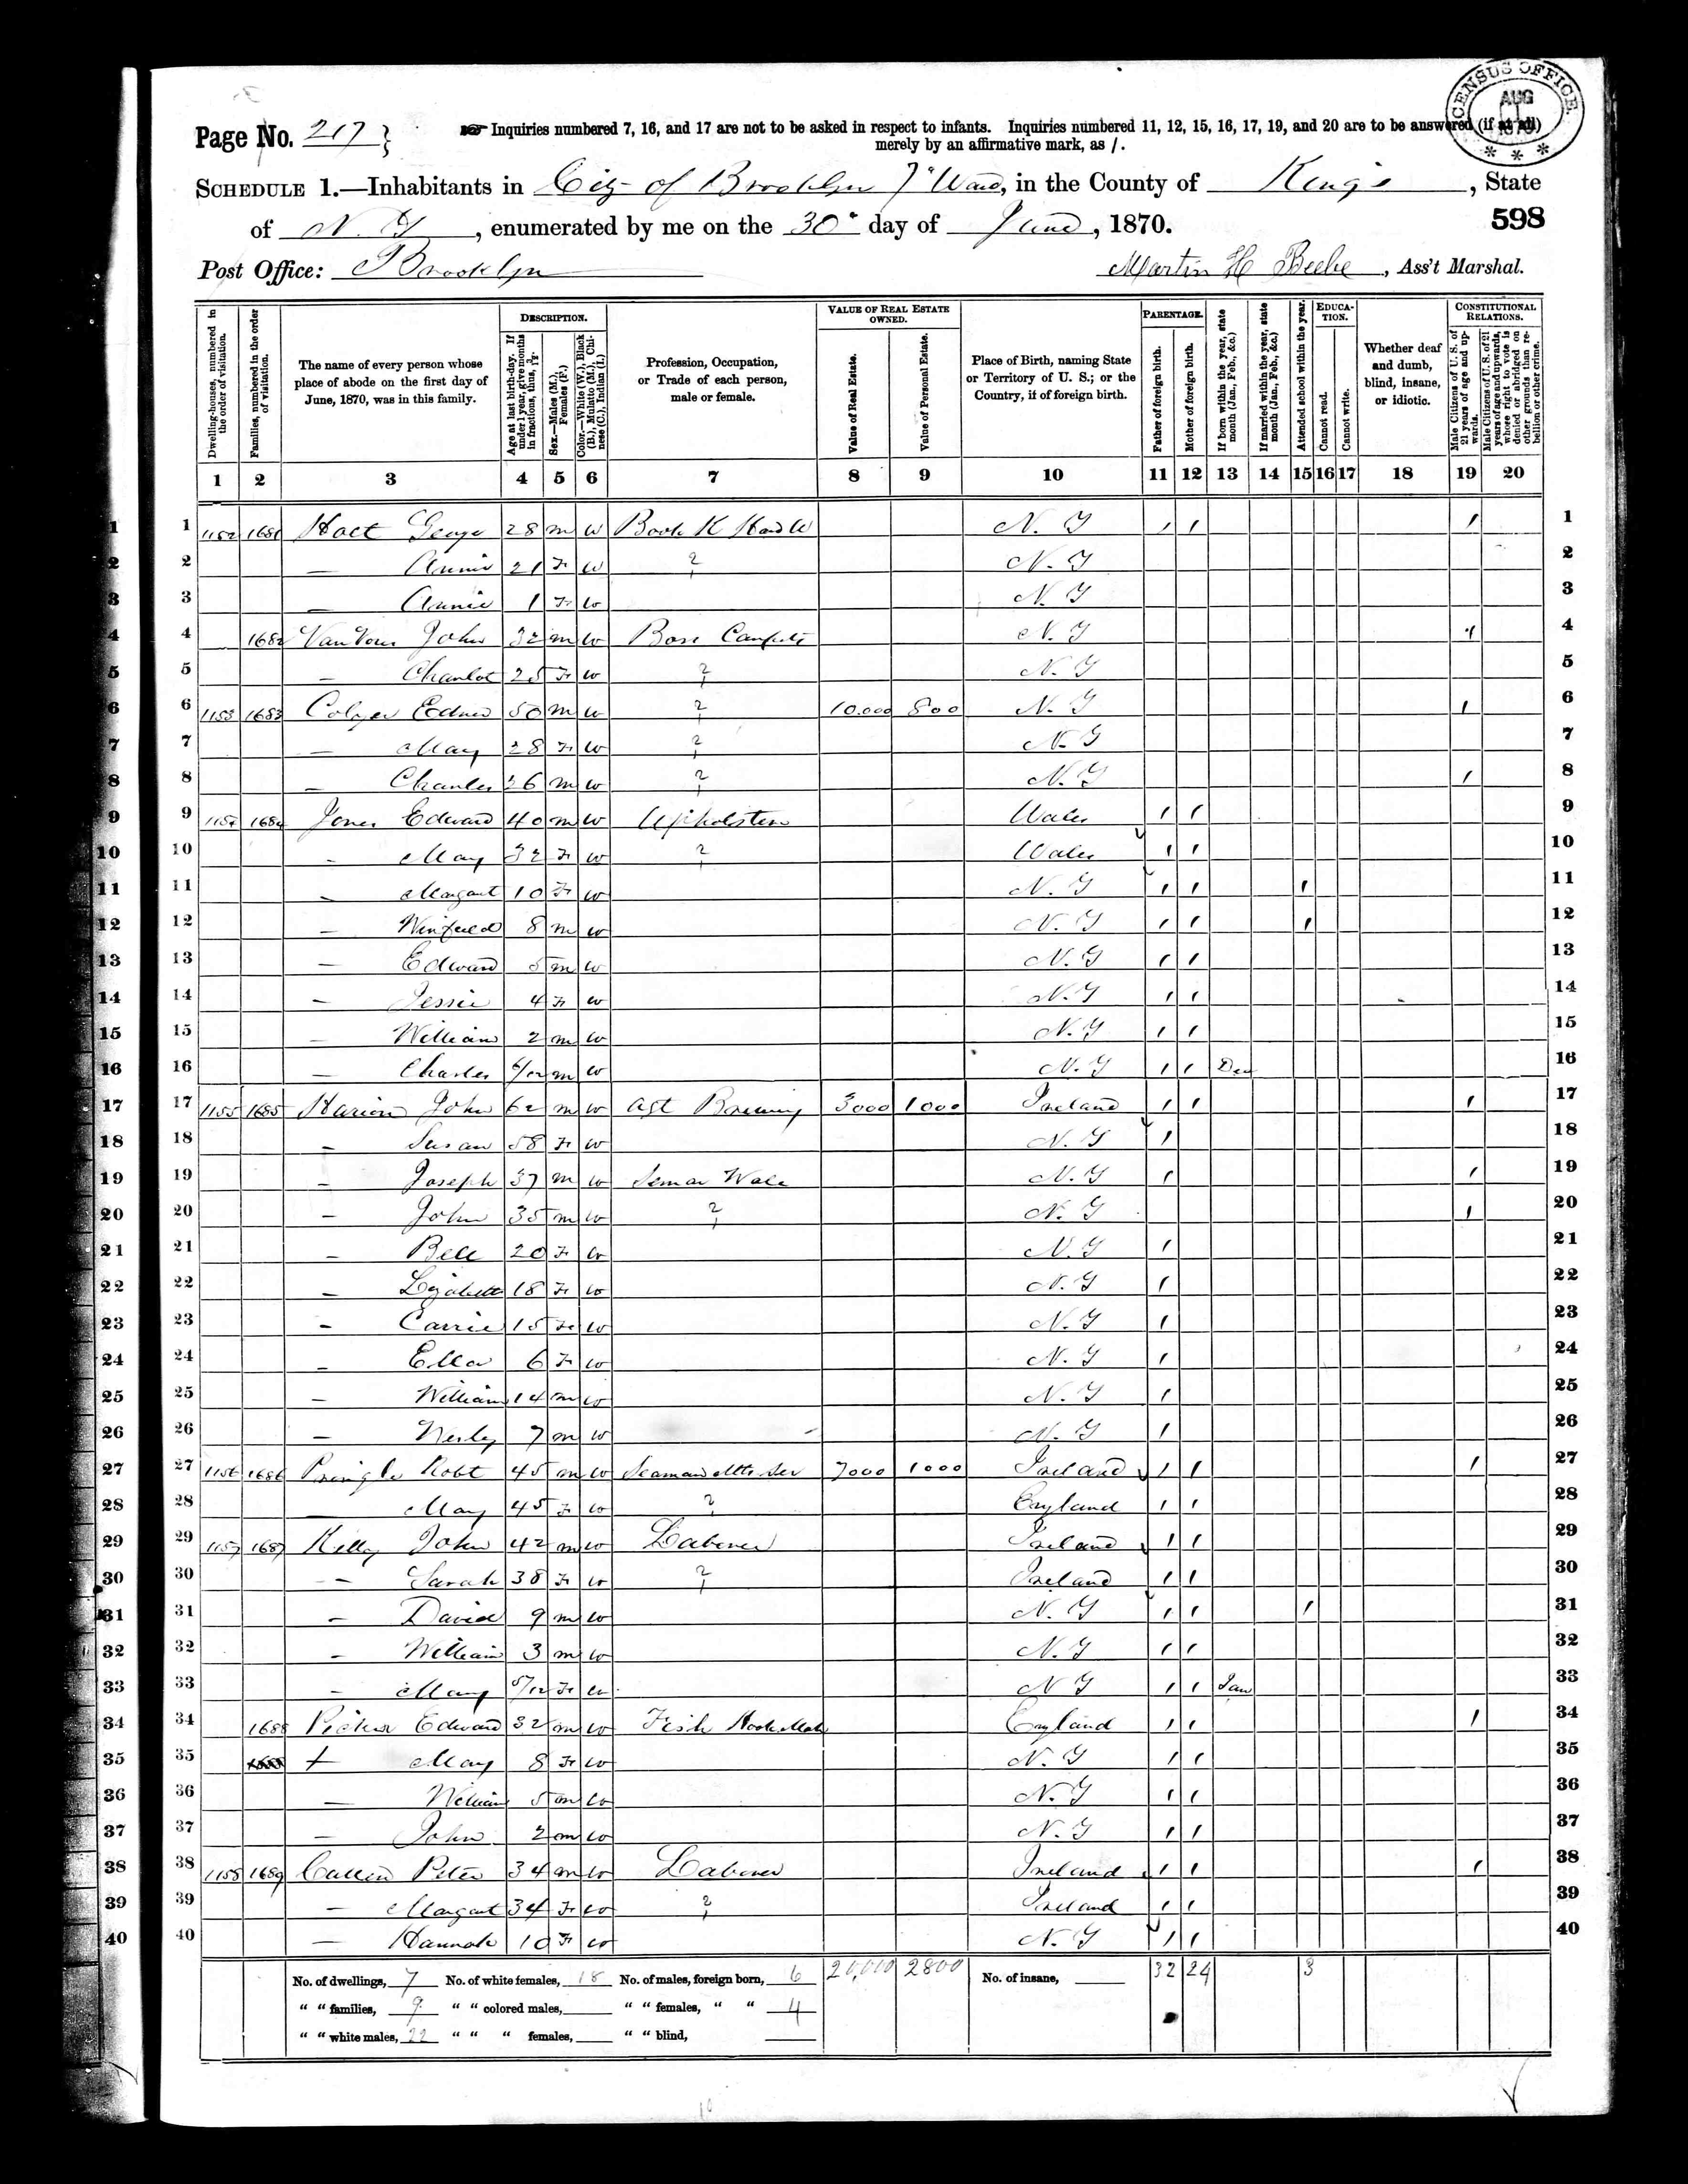 CENSUS OFFICE AUG 1870
Page No. 217
Inquiries numbered 7, 16, and 17 are not to be asked in respect to infants. Inquiries numbered 11, 12, 15, 16, 17, 19, and 20 are to be answered (if at all)
merely by an affirmative mark, as /.
SCHEDULE 1.—Inhabitants in City of Brooklyn 7" Ward, in the County of Kings, State
of N. Y, enumerated by me on the 30" day of June, 1870.
598
Post Office: Brooklyn
Martin H Beebe, Ass't Marshal.
Dwelling-houses, numbered in the order of visitation.
Families, numbered in the order of visitation.
The name of every person whose place of abode on the first day of June, 1870, was in this family.
DESCRIPTION.
Age at last birth-day. If under 1 year, give months in fractions, thus, 3/12.
Sex.—Males (M.), Females (F.)
Color.—White (W.), Black (B.), Mulatto (M.), Chinese (C.), Indian (I.)
Profession, Occupation, or Trade of each person, male or female.
VALUE OF REAL ESTATE OWNED.
Value of Real Estate.
Value of Personal Estate.
Place of Birth, naming State or Territory of U. S.; or the Country, if of foreign birth.
PARENTAGE.
Father of foreign birth.
Mother of foreign birth.
If born within the year, state month (Jan., Feb., &c.)
If married within the year, state month (Jan., Feb., &c.)
Attended school within the year.
EDUCATION.
Cannot read.
Cannot write.
Whether deaf and dumb, blind, insane, or idiotic.
CONSTITUTIONAL RELATIONS.
Male Citizens of U. S. of 21 years of age and upwards.
Male Citizens of U. S. of 21 years of age and upwards, whose right to vote is denied or abridged on other grounds than rebellion or other crime.
1 2 3 4 5 6 7 8 9 10 11 12 13 14 15 16 17 18 19 20
1 1 1152 1681 George 28 m W N. Y / / / 1
2 2 — Annie 21 F W N. Y 2
3 3 — Annie 1 F W N. Y 3
4 4 1682 John 32 m W N. Y / 4
5 5 — Charlot 25 F W N. Y 5
6 6 1153 1683 Colyer 50 m W 10.000 800 N. Y / 6
7 7 — Mary 28 F W N. Y 7
8 8 — Charles 26 m W N. Y / 8
9 9 1154 1684 Jones Edward 40 m W Upholsterer Wales / / 9
10 10 — Mary 32 F W Wales / / 10
11 11 — Margaret 10 F W N. Y / / / 11
12 12 — Winfield 8 m W N. Y / / / 12
13 13 — Edward 5 m W N. Y / / 13
14 14 — Jessie 4 F W N. Y / / 14
15 15 — William 2 m W N. Y / / 15
16 16 — Charles 6/12 m W N. Y / / Dec 16
17 17 1155 1685 John 62 m W Agt 3000 1000 Ireland / / / 17
18 18 — Susan 58 F W N. Y / 18
19 19 — Joseph 37 m W N. Y / / 19
20 20 — John 35 m W N. Y / 20
21 21 — Bell 20 F W N. Y / 21
22 22 — Lizabeth 18 F W N. Y / 22
23 23 — Carrie 15 F W N. Y / 23
24 24 — Ella 6 F W N. Y / 24
25 25 — William 14 m W N. Y / 25
26 26 — Wesley 7 m W N. Y / 26
27 27 1156 1686 Pringle Robt 45 m W 7000 1000 Ireland / / / 27
28 28 — Mary 45 F W England / / 28
29 29 1157 1687 Kelly John 42 m W Laborer Ireland / / 29
30 30 — Sarah 38 F W Ireland / / 30
31 31 — David 9 m W N. Y / / / 31
32 32 — William 3 m W N. Y / / 32
33 33 — Mary 5/12 F W N Y / / Jan 33
34 34 1688 Edward 32 m W Fish Hook England / / / 34
35 35 — Mary 8 F W N. Y / / 35
36 36 — William 5 m W N. Y / / 36
37 37 — John 2 m W N. Y / / 37
38 38 1158 1689 Peter 34 m W Laborer Ireland / / / 38
39 39 — Margaret 34 F W Ireland / / 39
40 40 — Hannah 10 F W N. Y / / 40
No. of dwellings, 7 No. of white females, 18 No. of males, foreign born, 6 20,000 2800 No. of insane, 32 24 3
" " families, 9 " " colored males, " " females, " " 4
" " white males, 22 " " " females, " " blind,